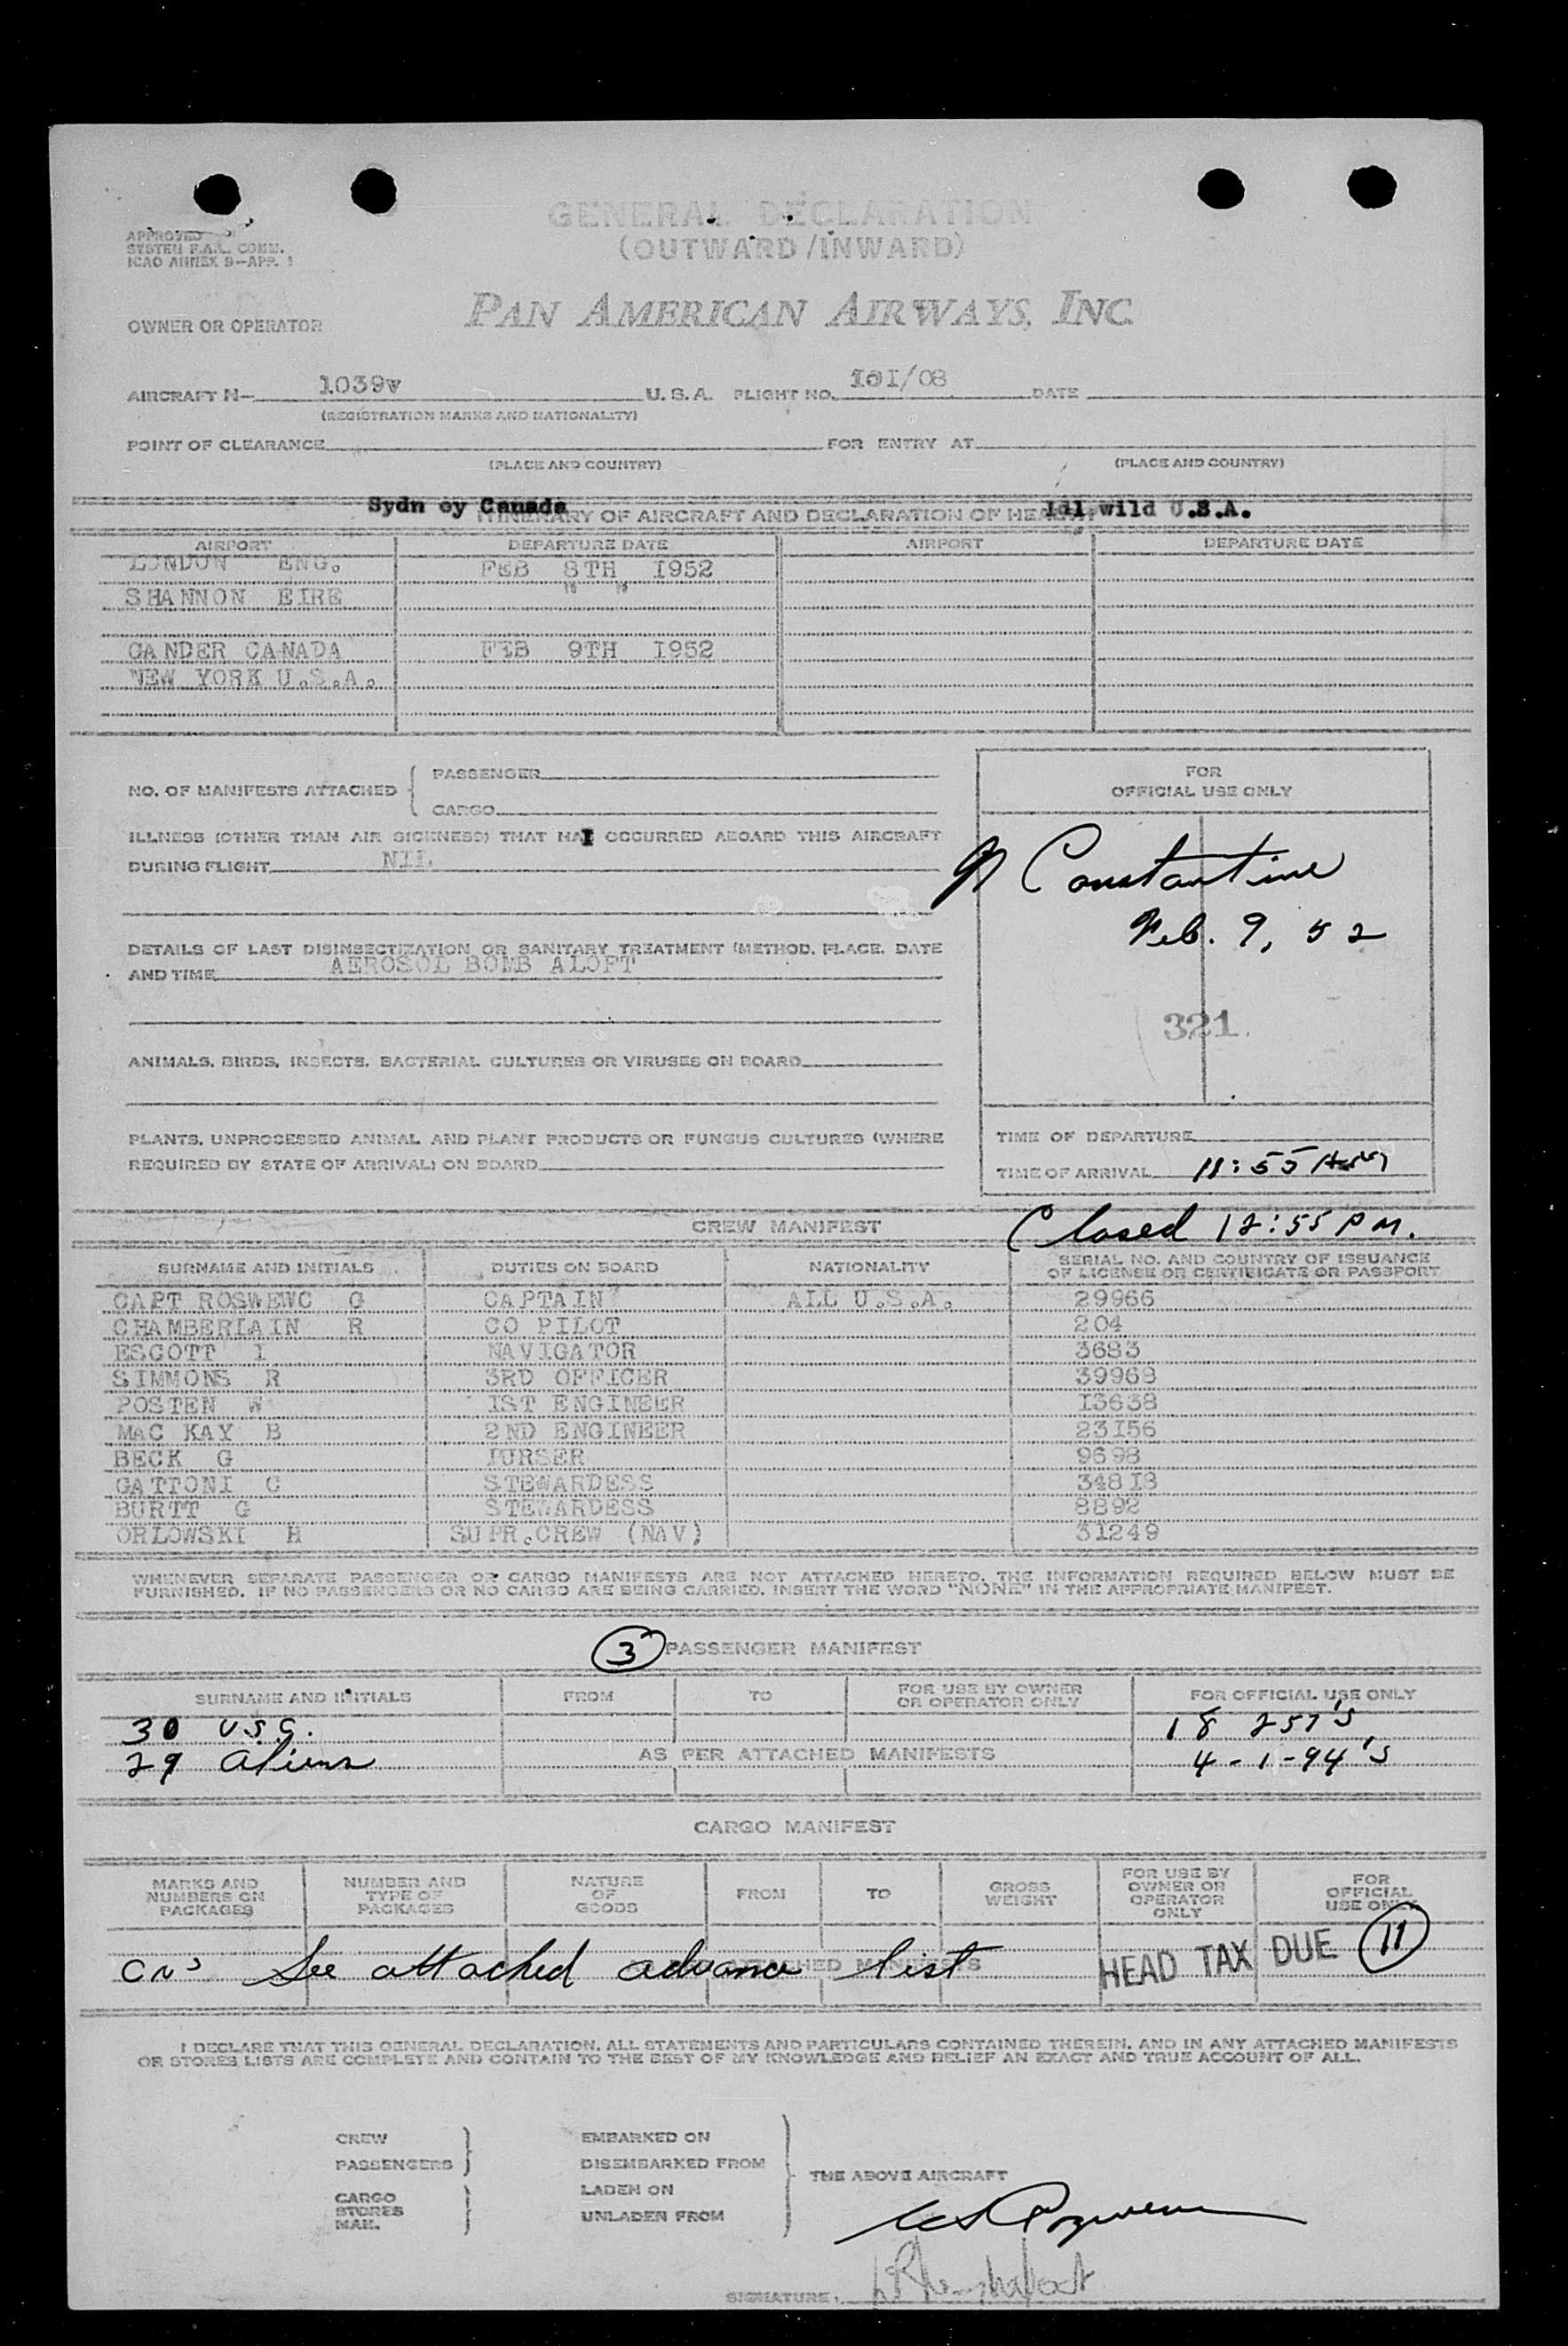 GENERAL DECLARATION
(OUTWARD/INWARD)
APPROVED
SYSTEM F.A.L. COMM.
ICAO ANNEX 9-APP. 1
OWNER OR OPERATOR PAN AMERICAN AIRWAYS, INC.
AIRCRAFT N- 1039v U.S.A. FLIGHT NO. 101/08 DATE
(REGISTRATION MARKS AND NATIONALITY)
POINT OF CLEARANCE FOR ENTRY AT
(PLACE AND COUNTRY) (PLACE AND COUNTRY)
Sydn ey Canada Idl wild U.S.A.
ITINERARY OF AIRCRAFT AND DECLARATION OF HEALTH
AIRPORT DEPARTURE DATE AIRPORT DEPARTURE DATE
LONDON ENG. FEB 8TH 1952
SHANNON EIRE " "
GANDER CANADA FEB 9TH 1952
NEW YORK U.S.A.
NO. OF MANIFESTS ATTACHED { PASSENGER
CARGO
ILLNESS (OTHER THAN AIR SICKNESS) THAT HAS OCCURRED ABOARD THIS AIRCRAFT
DURING FLIGHT NIL
DETAILS OF LAST DISINSECTIZATION OR SANITARY TREATMENT (METHOD, PLACE, DATE
AND TIME AEROSOL BOMB ALOFT
ANIMALS, BIRDS, INSECTS, BACTERIAL CULTURES OR VIRUSES ON BOARD
PLANTS, UNPROCESSED ANIMAL AND PLANT PRODUCTS OR FUNGUS CULTURES (WHERE
REQUIRED BY STATE OF ARRIVAL) ON BOARD
FOR
OFFICIAL USE ONLY
Constantine
Feb. 9, 52
321
TIME OF DEPARTURE
TIME OF ARRIVAL 11:55 AM
CREW MANIFEST Closed 12:55 PM.
SURNAME AND INITIALS DUTIES ON BOARD NATIONALITY SERIAL NO. AND COUNTRY OF ISSUANCE
OF LICENSE OR CERTIFICATE OR PASSPORT
CAPT ROSWEWC G CAPTAIN ALL U.S.A. 29966
CHAMBERLAIN R CO PILOT 204
ESCOTT I NAVIGATOR 3683
SIMMONS R 3RD OFFICER 39968
POSTEN W 1ST ENGINEER 13638
MAC KAY B 2ND ENGINEER 23156
BECK G PURSER 9698
GATTONI C STEWARDESS 34818
BURTT G STEWARDESS 8892
ORLOWSKI H SUPR.CREW (NAV) 31249
WHENEVER SEPARATE PASSENGER OR CARGO MANIFESTS ARE NOT ATTACHED HERETO, THE INFORMATION REQUIRED BELOW MUST BE
FURNISHED. IF NO PASSENGERS OR NO CARGO ARE BEING CARRIED, INSERT THE WORD "NONE" IN THE APPROPRIATE MANIFEST.
3 PASSENGER MANIFEST
SURNAME AND INITIALS FROM TO FOR USE BY OWNER
OR OPERATOR ONLY FOR OFFICIAL USE ONLY
30 U.S.C. 18 257's
29 aliens AS PER ATTACHED MANIFESTS 4-1-94's
CARGO MANIFEST
MARKS AND
NUMBERS ON
PACKAGES
NUMBER AND
TYPE OF
PACKAGES
NATURE
OF
GOODS
FROM
TO
GROSS
WEIGHT
FOR USE BY
OWNER OR
OPERATOR
ONLY
FOR
OFFICIAL
USE ONLY
See attached advance list ATTACHED MANIFESTS HEAD TAX DUE 11
I DECLARE THAT THIS GENERAL DECLARATION, ALL STATEMENTS AND PARTICULARS CONTAINED THEREIN, AND IN ANY ATTACHED MANIFESTS
OR STORES LISTS ARE COMPLETE AND CONTAIN TO THE BEST OF MY KNOWLEDGE AND BELIEF AN EXACT AND TRUE ACCOUNT OF ALL.
CREW EMBARKED ON
PASSENGERS DISEMBARKED FROM
THE ABOVE AIRCRAFT
CARGO LADEN ON
STORES
MAIL UNLADEN FROM
SIGNATURE